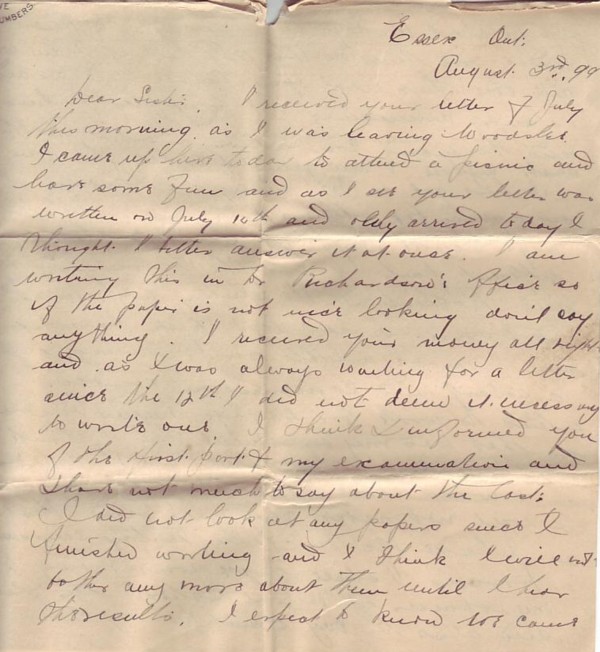 UMBERS
Essex Ont.
August 3rd, 99
Dear Sister. I received your letter of July
this morning as I was leaving Woodslee.
I came up here today to attend a picnic and
have some fun and as I see your letter was
written on July 14th and only arrived today I
thought I better answer it at once. I am
writing this in Dr Richardson's office so
if the paper is not nice looking don't say
anything. I received your money all right
and as I was always waiting for a letter
since the 12th I did not deem it necessary
to write one. I think I informed you
of the first part of my examination and
I have not much to say about the last.
I did not look at any papers since I
finished writing and I think I will not
bother any more about them until I hear
the results. I expect to know